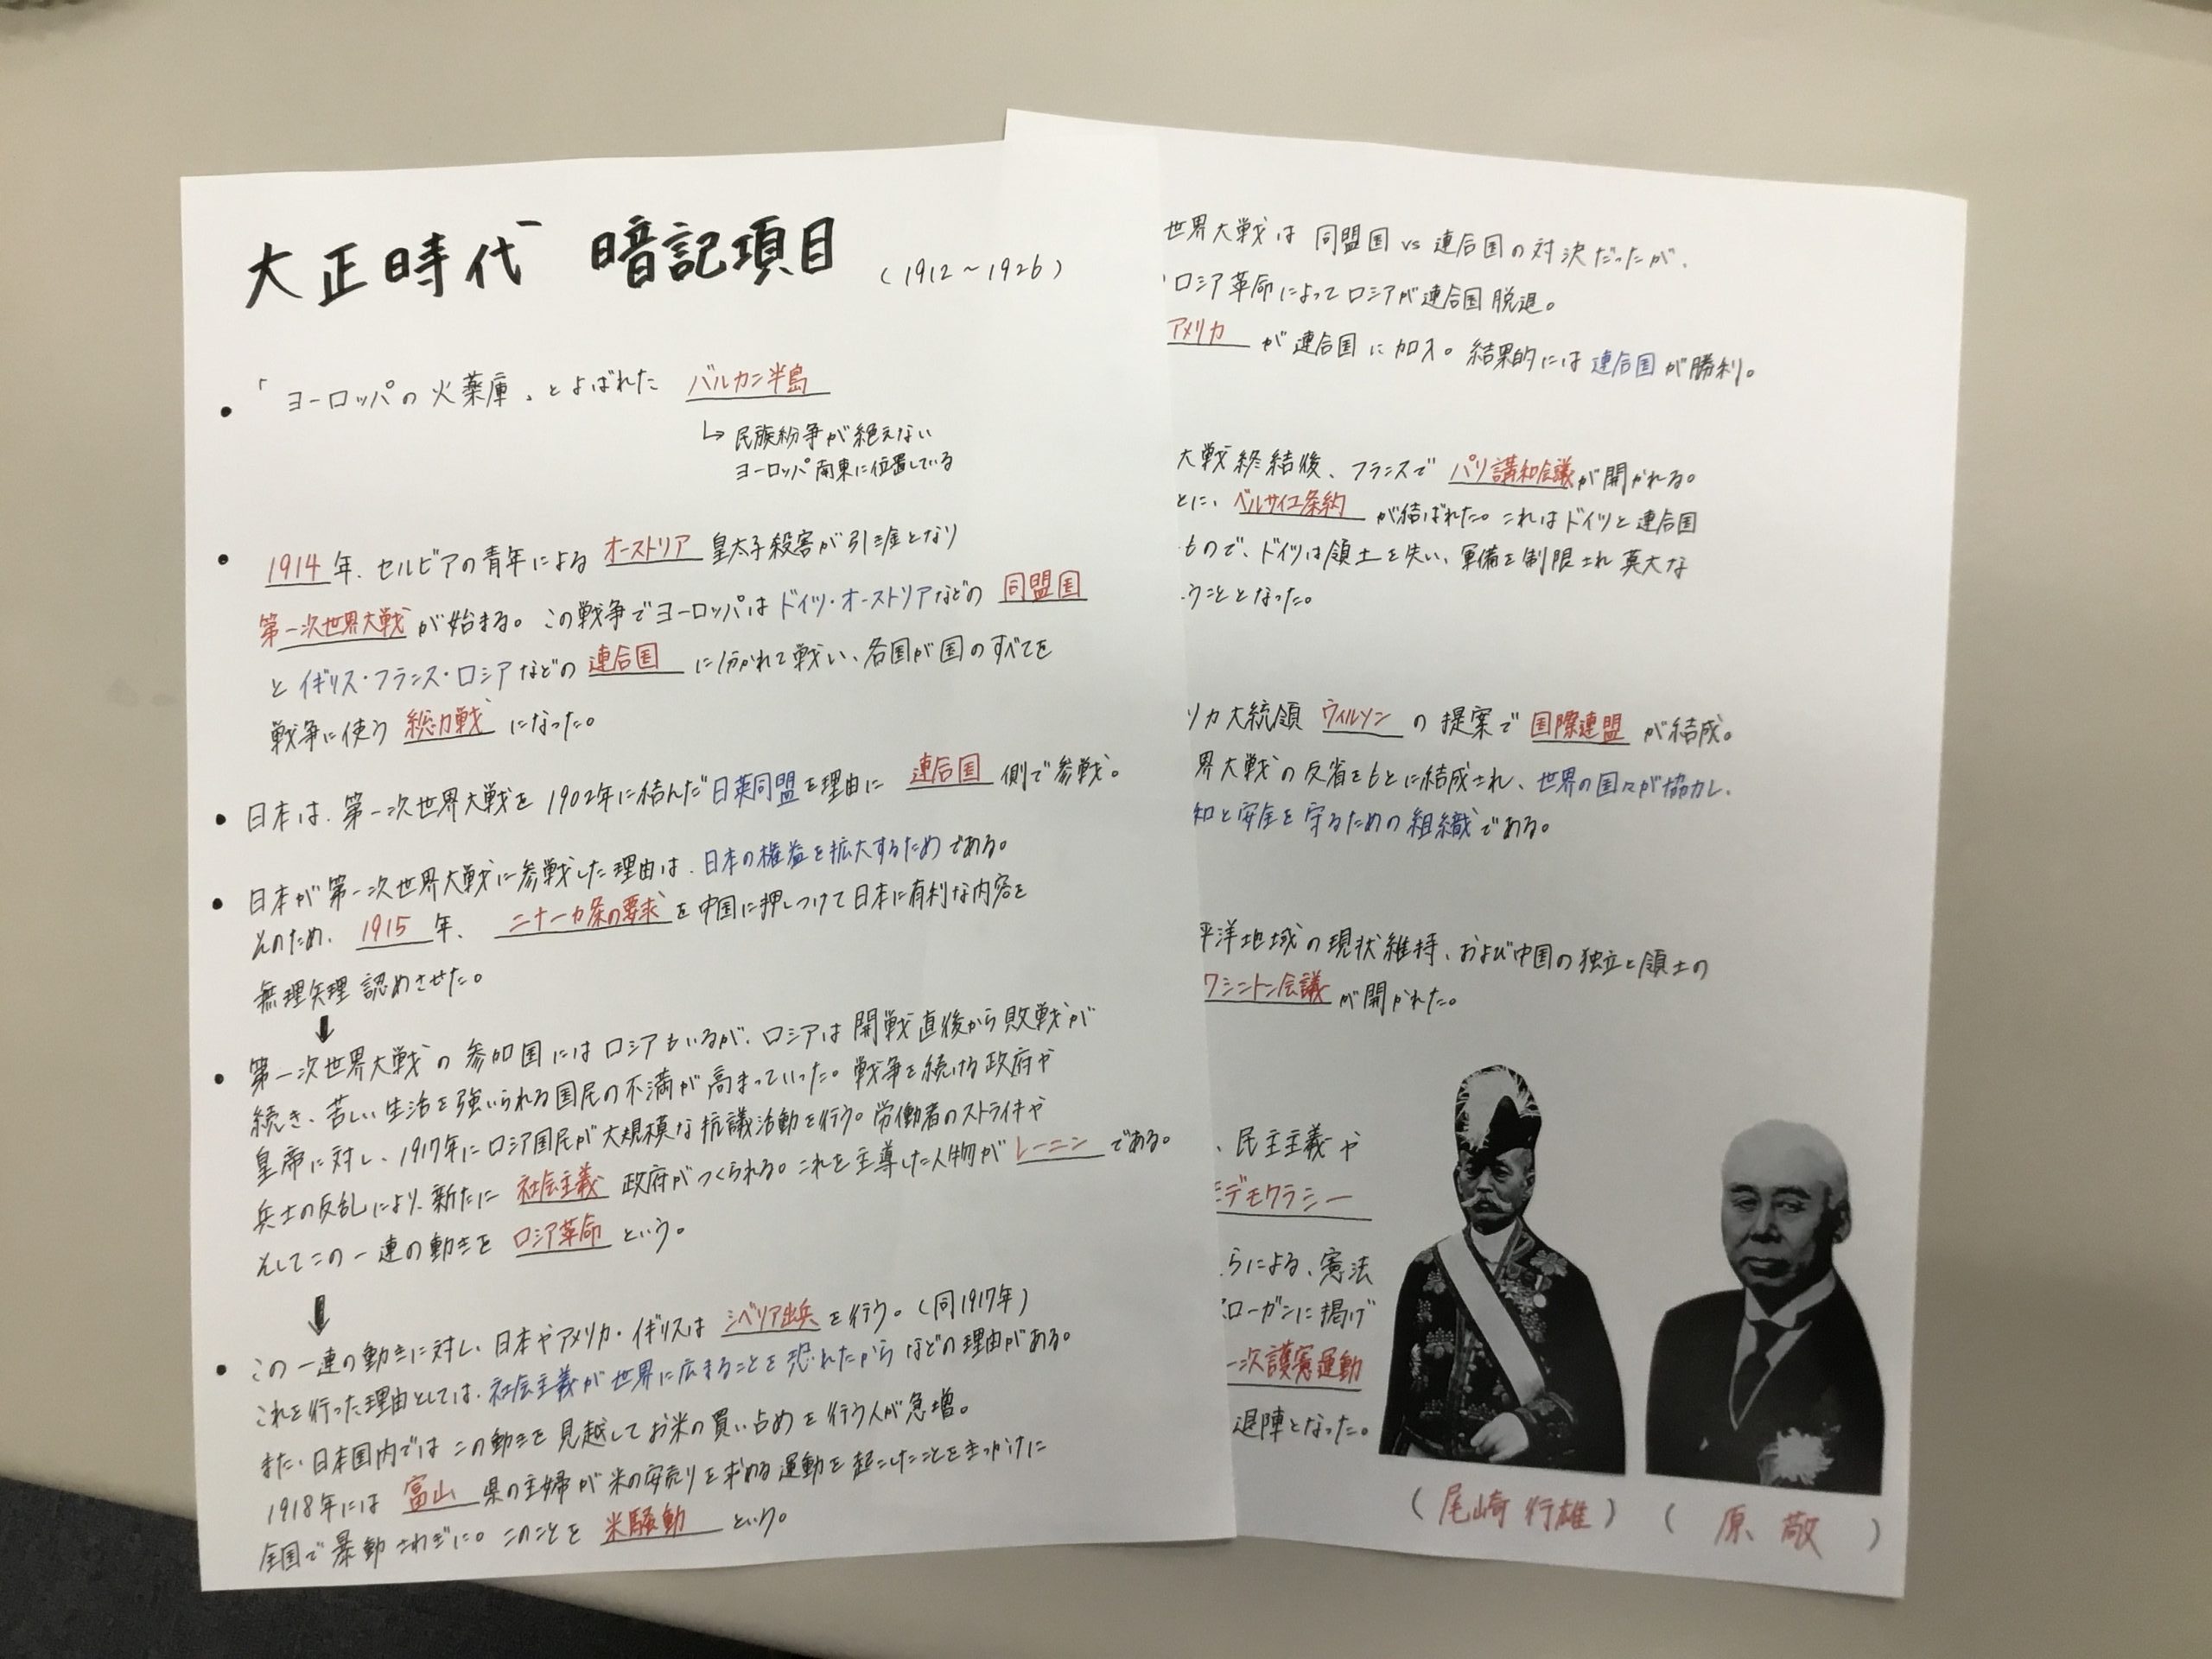 大正時代 暗記項目 (1912～1926)
「ヨーロッパの火薬庫」とよばれた バルカン半島
↳ 民族紛争が絶えない
ヨーロッパ南東に位置している
1914年、セルビアの青年による オーストリア 皇太子殺害が引き金となり
第一次世界大戦 が始まる。この戦争でヨーロッパはドイツ・オーストリアなどの 同盟国
と イギリス・フランス・ロシアなどの 連合国 に分かれて戦い、各国が国のすべてを
戦争に使う 総力戦 になった。
日本は、第一次世界大戦を 1902年に結んだ日英同盟を理由に 連合国 側で参戦。
日本が第一次世界大戦に参戦した理由は、日本の権益を拡大するためである。
そのため、1915年、二十一カ条の要求を中国に押しつけて日本に有利な内容を
無理矢理認めさせた。
↓
第一次世界大戦の参加国にはロシアもいるが、ロシアは開戦直後から敗戦が
続き、苦しい生活を強いられる国民の不満が高まっていった。戦争を続ける政府や
皇帝に対し、1917年にロシア国民が大規模な抗議活動を行う。労働者のストライキや
兵士の反乱により、新たに 社会主義 政府がつくられる。これを主導した人物が レーニン である。
そしてこの一連の動きを ロシア革命 という。
↓
この一連の動きに対し、日本やアメリカ・イギリスは シベリア出兵 を行う。(同1917年)
これを行った理由としては、社会主義が世界に広まることを恐れたからなどの理由がある。
また、日本国内ではこの動きを見越してお米の買い占めを行う人が急増。
1918年には 富山 県の主婦が米の安売りを求める運動を起こしたことをきっかけに
全国で暴動さわぎに。このことを 米騒動 という。
世界大戦は 同盟国 vs 連合国の対決だったが、
ロシア革命によってロシアが連合国脱退。
アメリカ が連合国に加入。結果的には連合国が勝利。
大戦終結後、フランスで パリ講和会議が開かれる。
とに、ベルサイユ条約 が結ばれた。これはドイツと連合国
もので、ドイツは領土を失い、軍備を制限され莫大な
うこととなった。
リカ大統領 ウィルソン の提案で 国際連盟 が結成。
界大戦の反省をもとに結成され、世界の国々が協力し、
和と安全を守るための組織である。
平洋地域の現状維持、および中国の独立と領土の
ワシントン会議 が開かれた。
、民主主義や
デモクラシー
らによる、憲法
ローガンに掲げ
一次護憲運動
退陣となった。
(尾崎 行雄) (原 敬)